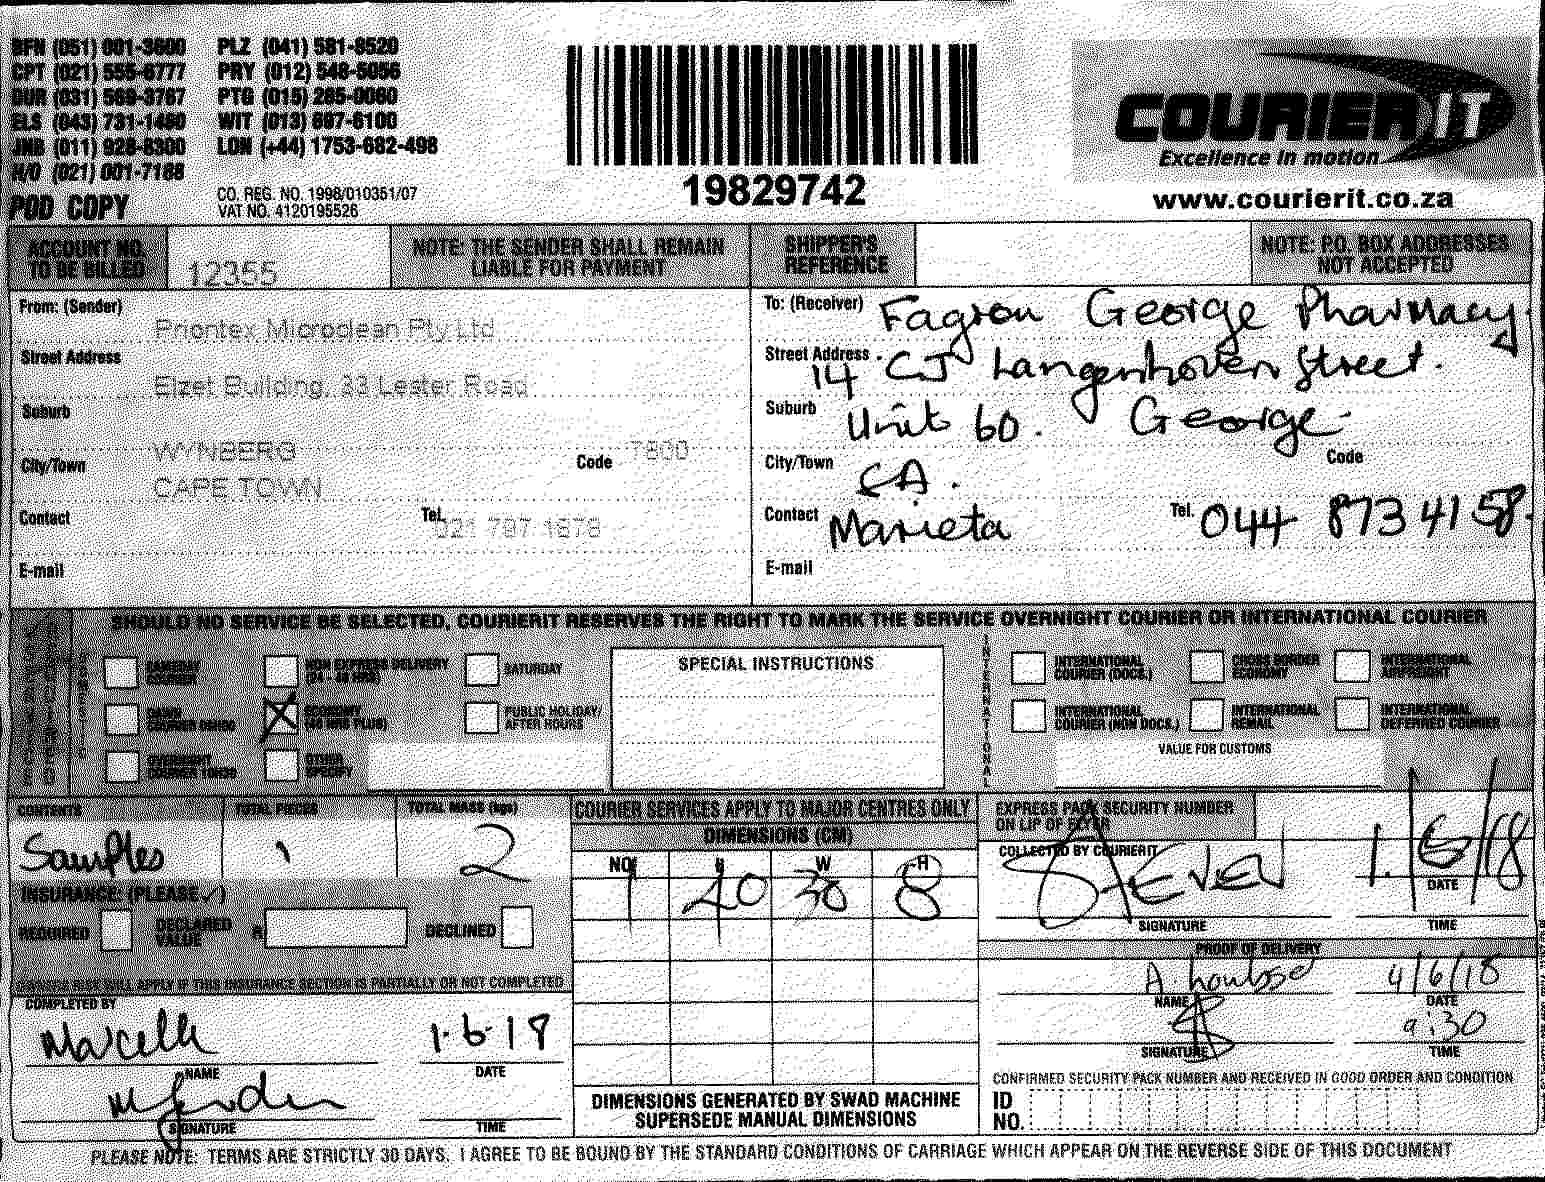 BFN (051) 001-3600 PLZ (041) 581-8520
CPT (021) 555-6777 PRY (012) 548-5056
DUR (031) 569-3767 PTG (015) 285-0060
ELS (043) 731-1460 WIT (013) 667-6100
JNB (011) 928-8300 LON (+44) 1753-682-498
H/O (021) 001-7188
POD COPY
CO. REG. NO. 1998/010351/07
VAT NO. 4120195526
19829742
COURIER IT
Excellence in motion
www.courierit.co.za
ACCOUNT NO. TO BE BILLED 12355
NOTE: THE SENDER SHALL REMAIN LIABLE FOR PAYMENT
SHIPPER'S REFERENCE
NOTE: P.O. BOX ADDRESSES NOT ACCEPTED
From: (Sender) Priontex Microclean Pty Ltd
Street Address Elzet Building, 33 Lester Road
Suburb WYNBERG
City/Town CAPE TOWN Code 7800
Contact Tel. 021 797 1678
E-mail
To: (Receiver) Fagron George Pharmacy
Street Address 14 CJ Langenhoven Street.
Suburb Unit 60. George
City/Town SA. Code
Contact Marieta Tel. 044 873 4158
E-mail
SHOULD NO SERVICE BE SELECTED, COURIERIT RESERVES THE RIGHT TO MARK THE SERVICE OVERNIGHT COURIER OR INTERNATIONAL COURIER
SAMEDAY COURIER
NON EXPRESS DELIVERY (24 - 48 HRS)
SATURDAY
DAWN COURIER
ECONOMY (48 HRS PLUS)
PUBLIC HOLIDAY/ AFTER HOURS
OVERNIGHT COURIER 10H30
OTHER SPECIFY
SPECIAL INSTRUCTIONS
INTERNATIONAL
INTERNATIONAL COURIER (DOCS.)
CROSS BORDER ECONOMY
INTERNATIONAL AIRFREIGHT
INTERNATIONAL COURIER (NON DOCS.)
INTERNATIONAL REMAIL
INTERNATIONAL DEFERRED COURIER
VALUE FOR CUSTOMS
CONTENTS TOTAL PIECES TOTAL MASS (kgs)
Samples 1 2
INSURANCE: (PLEASE ✓)
REQUIRED DECLARED VALUE R DECLINED
COMPLETED BY
Marcelle 1.6.18
NAME DATE
SIGNATURE TIME
COURIER SERVICES APPLY TO MAJOR CENTRES ONLY
DIMENSIONS (CM)
NO. W H
1 40 30 8
DIMENSIONS GENERATED BY SWAD MACHINE
SUPERSEDE MANUAL DIMENSIONS
EXPRESS PACK SECURITY NUMBER
ON LIP OF FLYER
COLLECTED BY COURIERIT
STEVEN 1/6/18
DATE
SIGNATURE TIME
PROOF OF DELIVERY
A 4/6/18
NAME DATE
9:30
SIGNATURE TIME
CONFIRMED SECURITY PACK NUMBER AND RECEIVED IN GOOD ORDER AND CONDITION
ID NO.
PLEASE NOTE: TERMS ARE STRICTLY 30 DAYS. I AGREE TO BE BOUND BY THE STANDARD CONDITIONS OF CARRIAGE WHICH APPEAR ON THE REVERSE SIDE OF THIS DOCUMENT